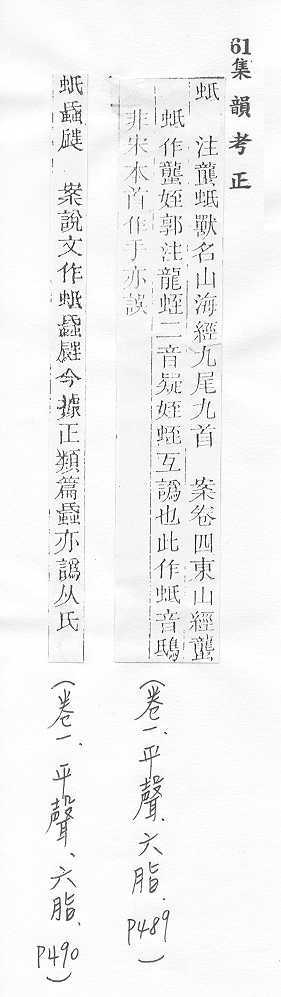 61集韻考正
蚔 注蠪蚔獸名山海經九尾九首 案卷四東山經蠪
蚔作蠪姪郭注龍蛭二音疑姪蛭互譌也此作蚔音鴟
非宋本首作于亦誤
(卷一、平聲、六脂、P489)
案說文作 今據正類篇 亦譌从氏
(卷一、平聲、六脂、P490)